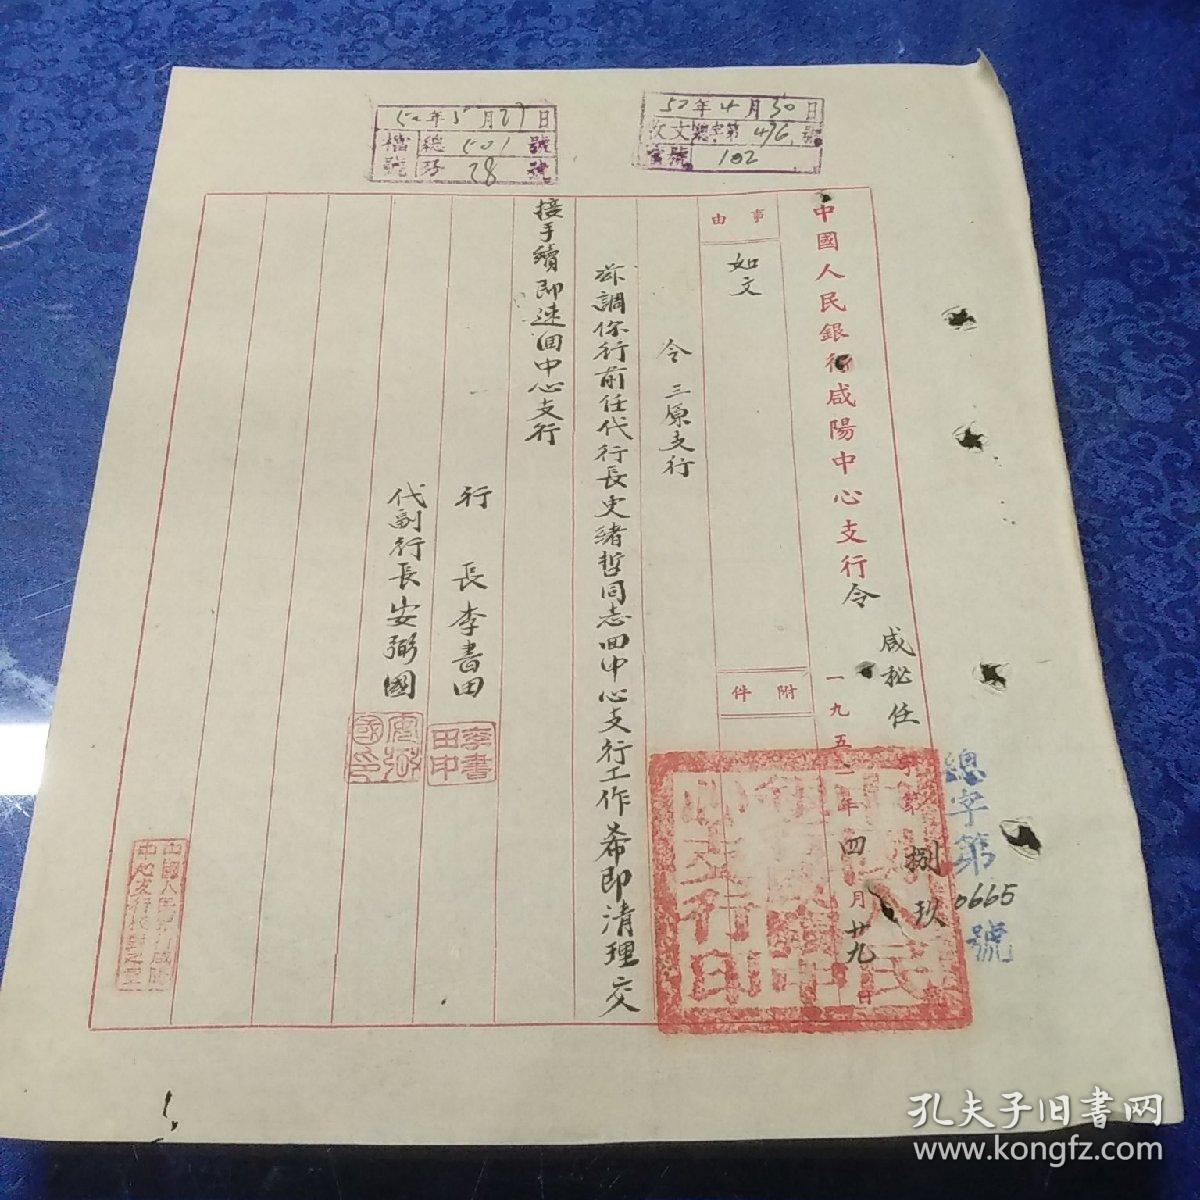 52年5月27日
檔號 總 501 號
28 號
52年4月30日
收文總字第 496 號
102
中國人民銀行咸陽中心支行令
咸秘任字第捌玖號
一九五二年四月廿九日
總字第0665號
事由
如文
附件
令三原支行
茲調你行前任代行長史緒哲同志回中心支行工作希即清理交
接手續即速回中心支行
行長李書田
李書田印
代副行長安弼國
中國人民銀行咸陽
孔夫子旧书网
www.kongfz.com